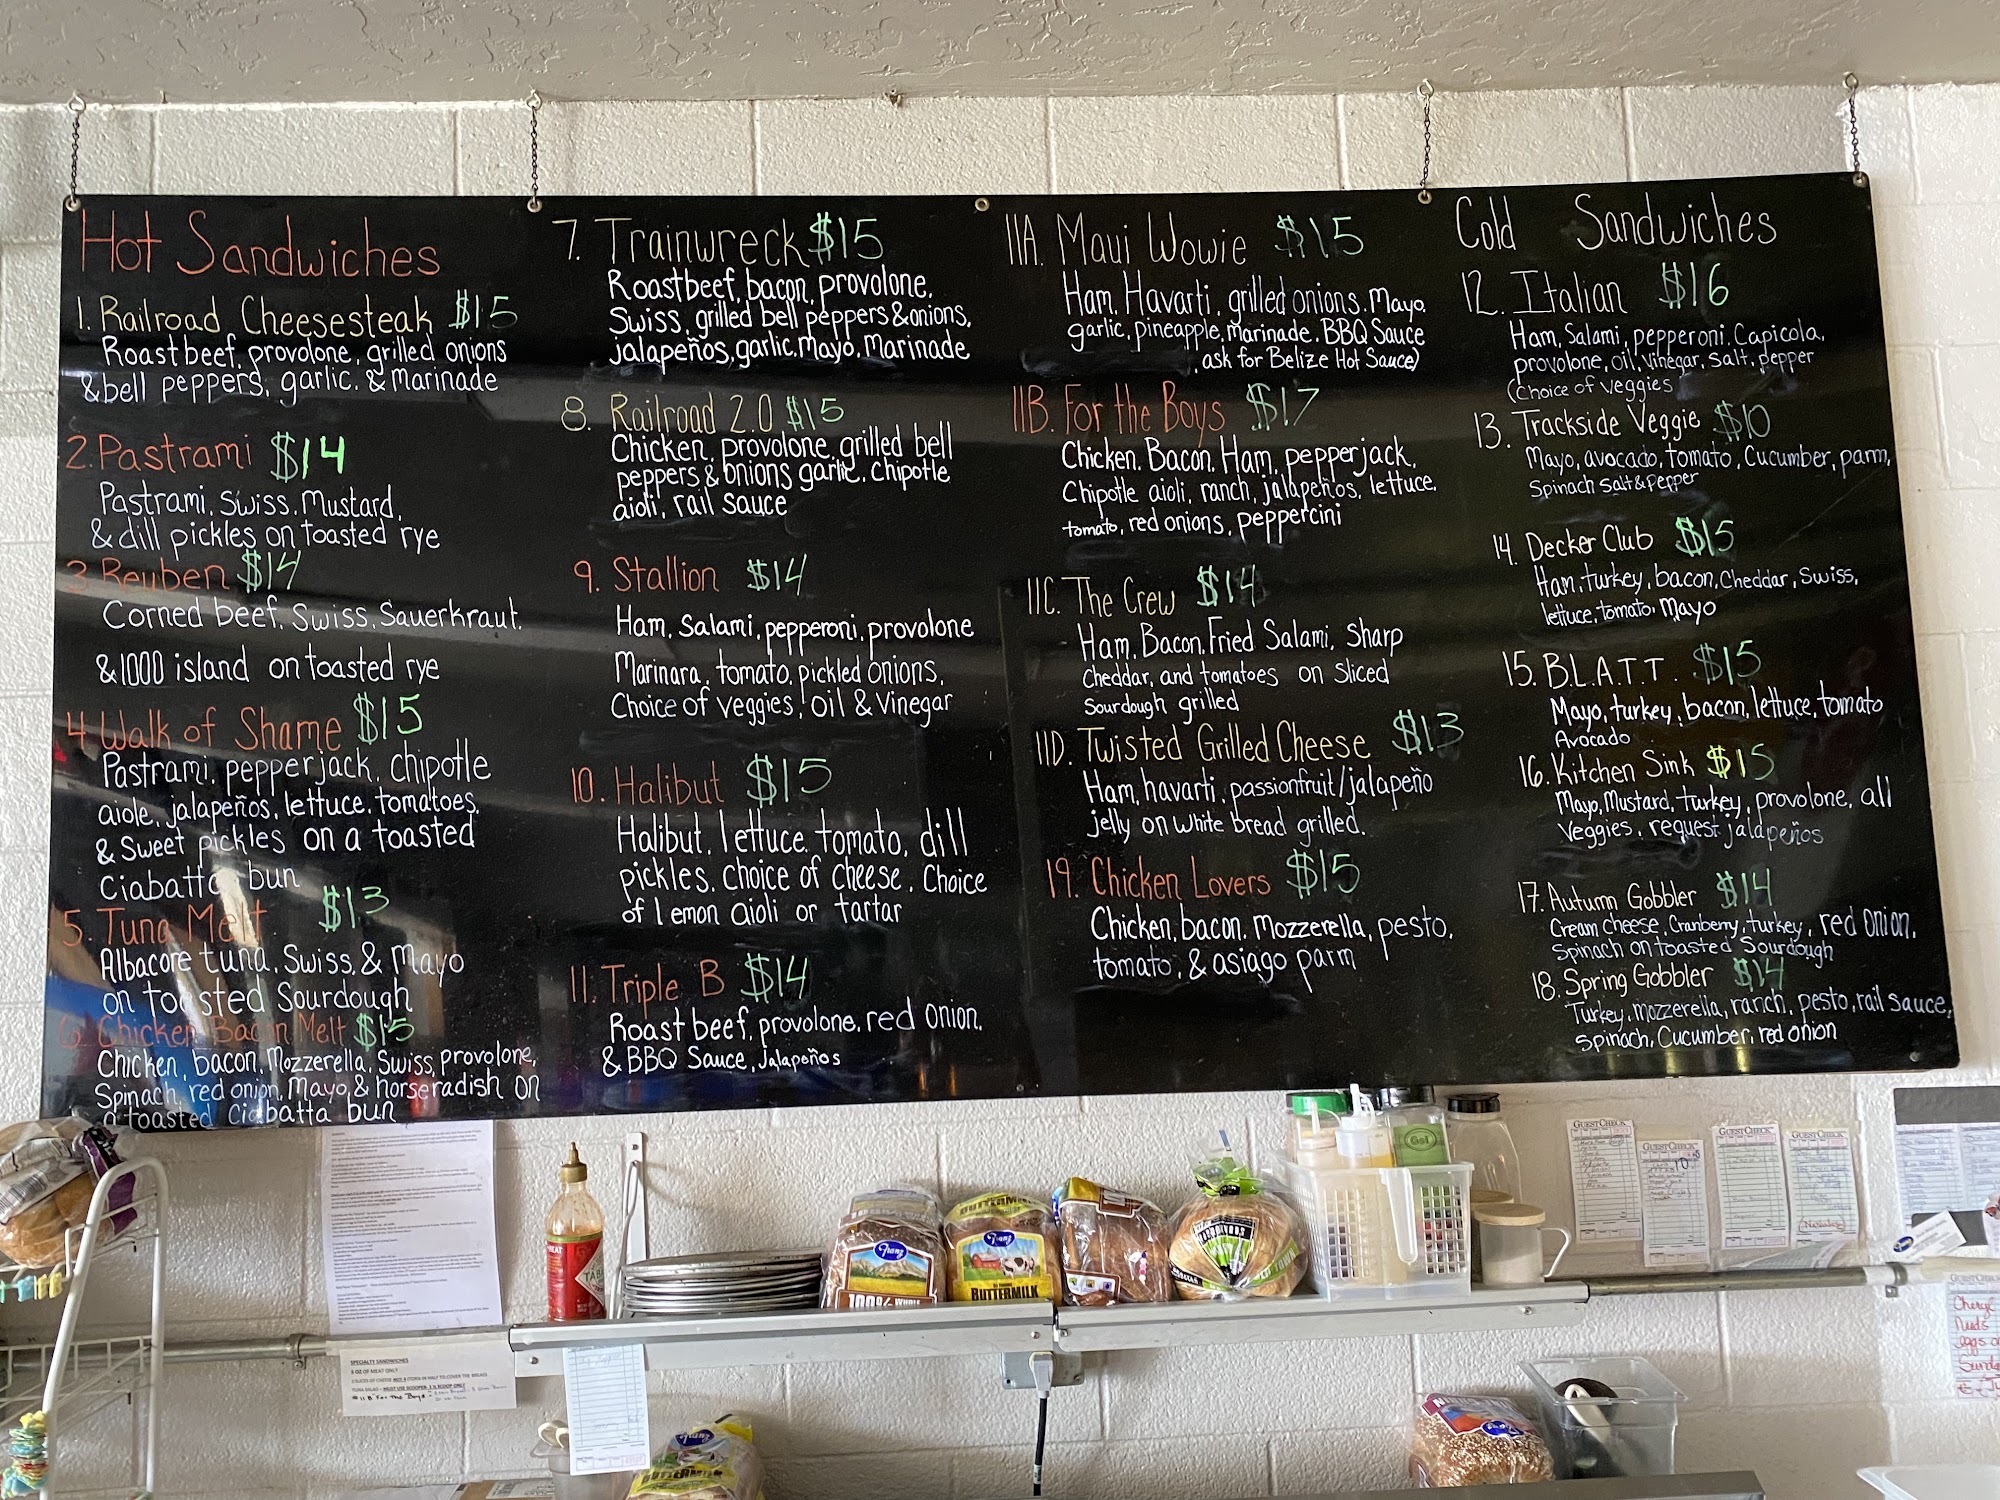 Hot Sandwiches
1. Railroad Cheesesteak $15
Roast beef, provolone, grilled onions
& bell peppers, garlic, & Marinade
2. Pastrami $14
Pastrami, Swiss, Mustard,
& dill pickles on toasted rye
3 Reuben $14
Corned beef, Swiss, Sauerkraut,
& 1000 island on toasted rye
4 Walk of Shame $15
Pastrami, pepperjack, chipotle
aiole, jalapeños, lettuce, tomatoes,
& Sweet pickles on a toasted
Ciabatta bun
5. Tuna Melt $13
Albacore tuna, Swiss, & Mayo
on toasted Sourdough
6. Chicken Bacon Melt $15
Chicken, bacon, Mozzerella, Swiss, provolone,
Spinach, red onion, Mayo, & horseradish on
a toasted Ciabatta bun
7. Trainwreck $15
Roastbeef, bacon, provolone,
Swiss, grilled bell peppers & onions,
jalapeños, garlic, Mayo, Marinade
8. Railroad 2.0 $15
Chicken, provolone, grilled bell
peppers & onions garlic, Chipotle
aioli, rail sauce
9. Stallion $14
Ham, Salami, pepperoni, provolone
Marinara, tomato, pickled onions,
Choice of veggies, oil & Vinegar
10. Halibut $15
Halibut, lettuce, tomato, dill
pickles, Choice of cheese, Choice
of lemon aioli or tartar
11. Triple B $14
Roast beef, provolone, red onion,
& BBQ Sauce, Jalapeños
11A. Maui Wowie $15
Ham, Havarti, grilled onions, Mayo,
garlic, pineapple, marinade, BBQ Sauce
, ask for Belize Hot Sauce)
11B. For the Boys $17
Chicken, Bacon, Ham, pepperjack,
Chipotle aioli, ranch, jalapeños, lettuce,
tomato, red onions, peppercini
11C. The Crew $14
Ham, Bacon, Fried Salami, Sharp
Cheddar, and tomatoes on Sliced
Sourdough grilled
11D. Twisted Grilled Cheese $13
Ham, havarti, passionfruit/jalapeño
jelly on white bread grilled.
19. Chicken Lovers $15
Chicken, bacon, Mozzerella, pesto,
tomato, & asiago parm
Cold Sandwiches
12. Italian $16
Ham, Salami, pepperoni, Capicola,
provolone, oil, Vinegar, Salt, pepper
(Choice of veggies
13. Trackside Veggie $10
Mayo, avocado, tomato, Cucumber, parm,
Spinach Salt & pepper
14. Decker Club $15
Ham, turkey, bacon, Cheddar, Swiss,
lettuce, tomato, Mayo
15. B.L.A.T.T. $15
Mayo, turkey, bacon, lettuce, tomato
Avocado
16. Kitchen Sink $15
Mayo, Mustard, turkey, provolone, all
Veggies, request jalapeños
17. Autumn Gobbler $14
Cream cheese, Cranberry, turkey, red onion,
Spinach on toasted Sourdough
18. Spring Gobbler $14
Turkey, mozzerella, ranch, pesto, rail sauce,
Spinach, Cucumber, red onion
GUESTCHECK
GUESTCHECK
GUESTCHECK
GUESTCHECK
Franz
100% WHOLE
Franz
BUTTERMILK
Franz
BUTTERMILK
SPECIALTY SANDWICHES